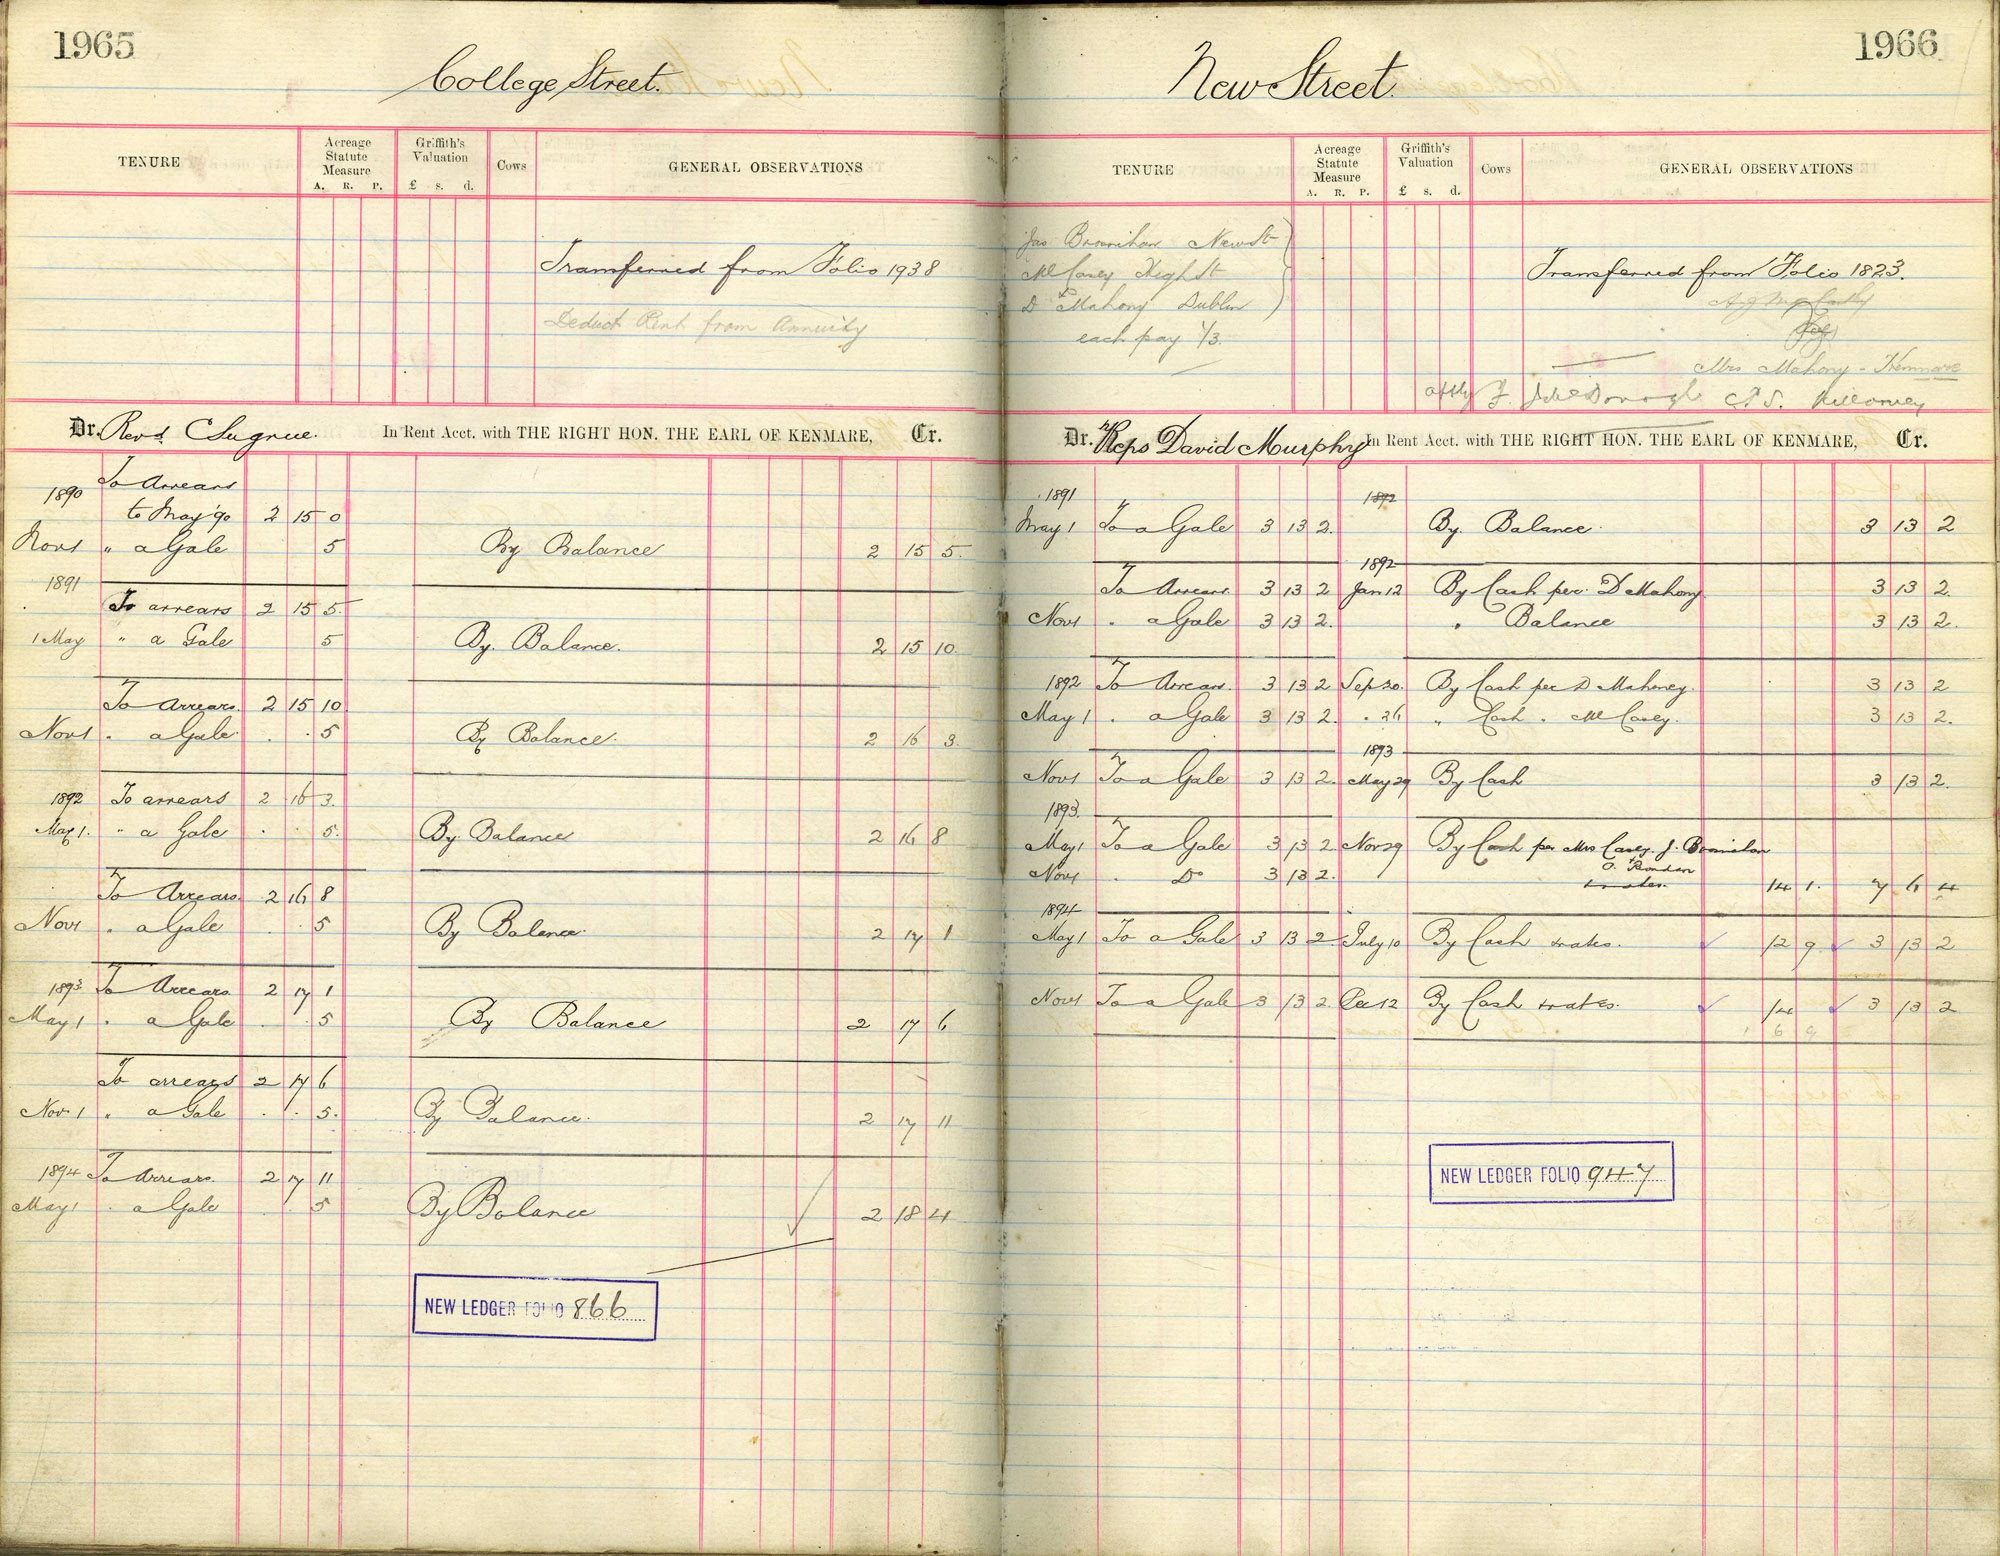 1965
College Street.
TENURE
Acreage Statute Measure
A. R. P.
Griffith's Valuation
£ s. d.
Cows
GENERAL OBSERVATIONS
Transferred from Folio 1938
Deduct Rent from Annuity
Dr. Revd. C Sugrue. In Rent Acct. with THE RIGHT HON. THE EARL OF KENMARE, Cr.
1890 To Arrears
to May '90 2 15 0
Nov 1 " a Gale 5 By Balance 2 15 5
1891
To arrears 2 15 5
1 May " a Gale 5 By. Balance. 2 15 10.
To Arrears. 2 15 10
Nov 1 " a Gale 5 By Balance. 2 16 3.
1892 To arrears 2 16 3.
May 1. " a Gale 5. By Balance 2 16 8
To Arrears. 2 16 8
Nov 1 " a Gale 5 By Balance. 2 17 1
1893 To Arrears 2 17 1
May 1 " a Gale 5 By Balance 2 17 6
To arrears 2 17 6
Nov 1 " a Gale 5. By Balance. 2 17 11
1894 To Arrears. 2 17 11
May 1 " a Gale 5 By Balance 2 18 4
NEW LEDGER FOLIO 866
1966
New Street.
TENURE
Acreage Statute Measure
A. R. P.
Griffith's Valuation
£ s. d.
Cows
GENERAL OBSERVATIONS
Jas Brosnihan New St
Mrs Casey High St
D Mahony Dublin
each pay 1/3.
Transferred from Folio 1823.
Mrs Mahony - Kenmare
J. McDonogh C.P.S. Killarney
Dr. Reps David Murphy In Rent Acct. with THE RIGHT HON. THE EARL OF KENMARE, Cr.
1891 1892
May 1 To a Gale 3 13 2. By. Balance. 3 13 2
1892
To Arrears 3 13 2 Jan 12 By Cash per D Mahony 3 13 2.
Nov 1 " a Gale 3 13 2. " Balance 3 13 2.
1892 To Arrears. 3 13 2 Sep 20. By Cash per D Mahoney. 3 13 2
May 1 " a Gale 3 13 2. " 26 " Cash " Mrs Casey. 3 13 2.
1893
Nov 1 To a Gale 3 13 2. May 29 By Cash 3 13 2.
1893.
May 1 To a Gale 3 13 2 Nov 29 By Cash per Mrs Casey. J. Brosnihan
Nov 1 " Do 3 13 2. & rates. 14 1. 7 6 4
1894
May 1 To a Gale 3 13 2 July 10 By Cash & rates. 12 9 3 13 2
Nov 1 To a Gale 3 13 2 Dec 12 By Cash & rates. 14 3 13 2
1 6 9
NEW LEDGER FOLIO 947